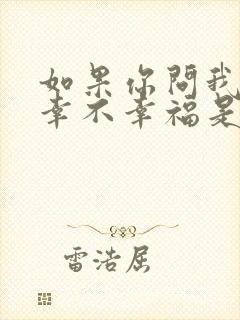 如果你问我
幸不幸福是
雷浩屈